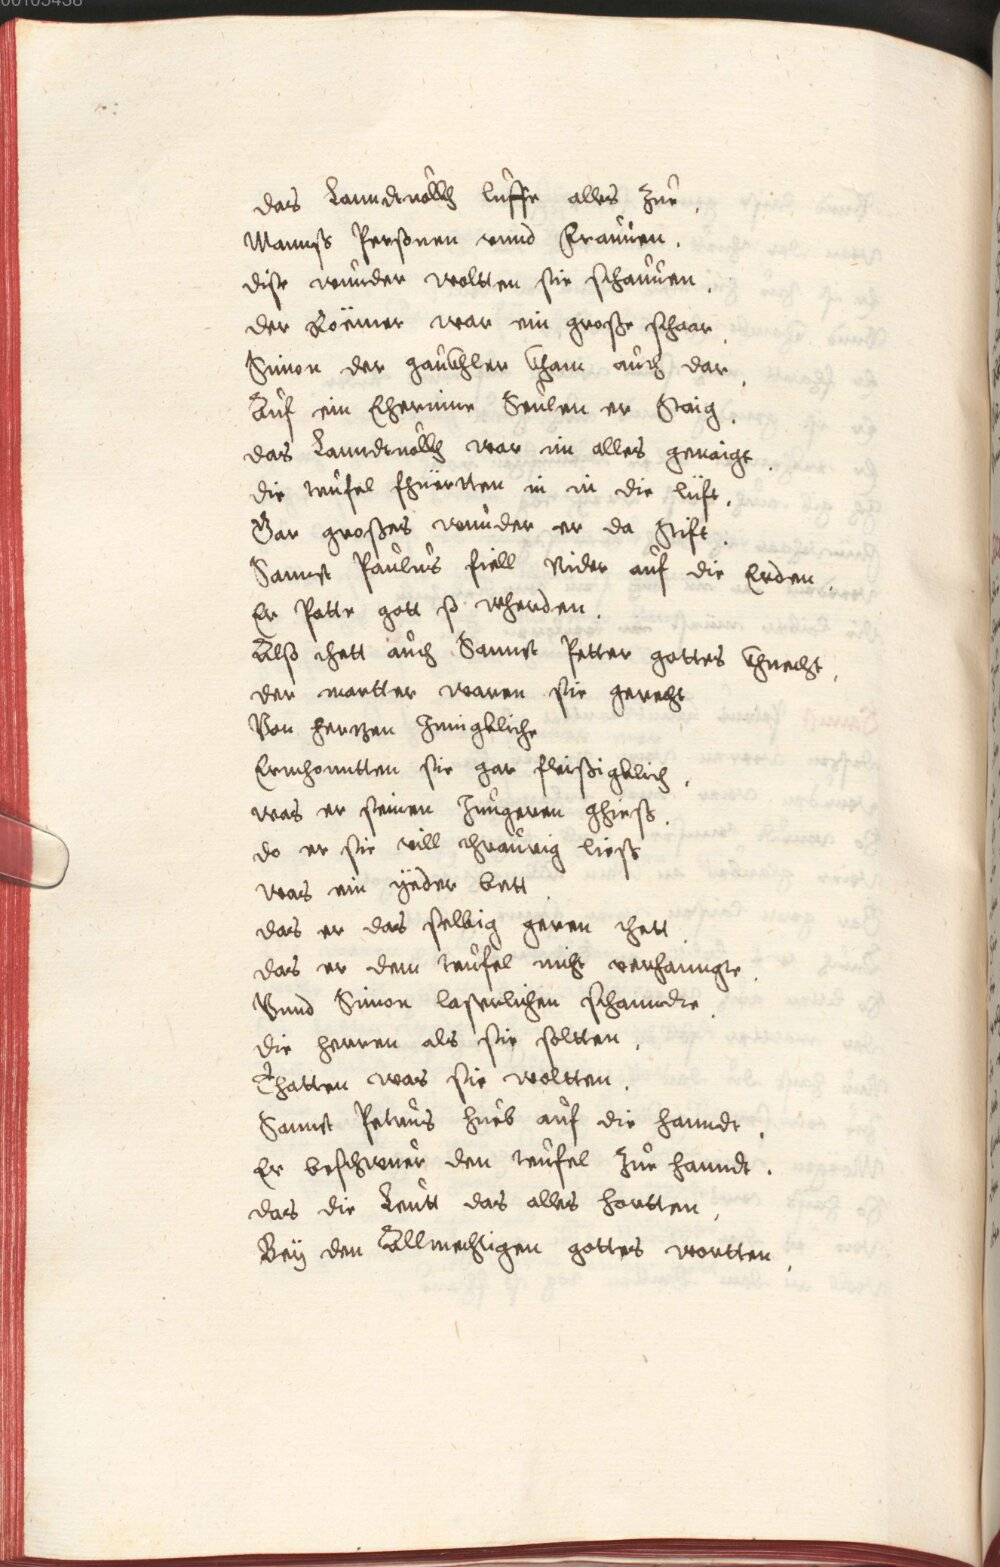 00105438
das Lanndtvolkh luffe alles Zue,
Manns Perßonen vnnd Frauuen.
dise wunder woltten sie schauuen.
der Roëmer war ein große schaar,
Simon der gaukhler kham auch dar,
Auf ein Eherinne Seulen er Staig.
das Lanndtvolkh war im alles genaigt.
die teufel fhüertten in in die lüft.
Gar großes wunder er da Stift.
Sannct Paulus fiell Nider auf die Erden,
Er Patte gott ß wherden.
Alß thett auch Sannct Petter gottes khnecht,
der martter waren sie gerecht
Von hertzen Innigkliche
Ermhonntten sie gar fleißigklich,
was er seinen Jüngeren ghieß.
do er sie vill thraurig ließ
was ein yeder bett
das er das selbig geren thett,
das er dem teufel nicht verhanngte.
Vnnd Simon lasterlichen schanndte,
die herren als sie soltten,
Thatten was sie woltten.
Sannct Petrus hueb auf die hanndt,
Er beschwuer den teufel Zue hanndt.
das die Leutt das alles hortten,
Bey den Allmechtigen gottes wortten,